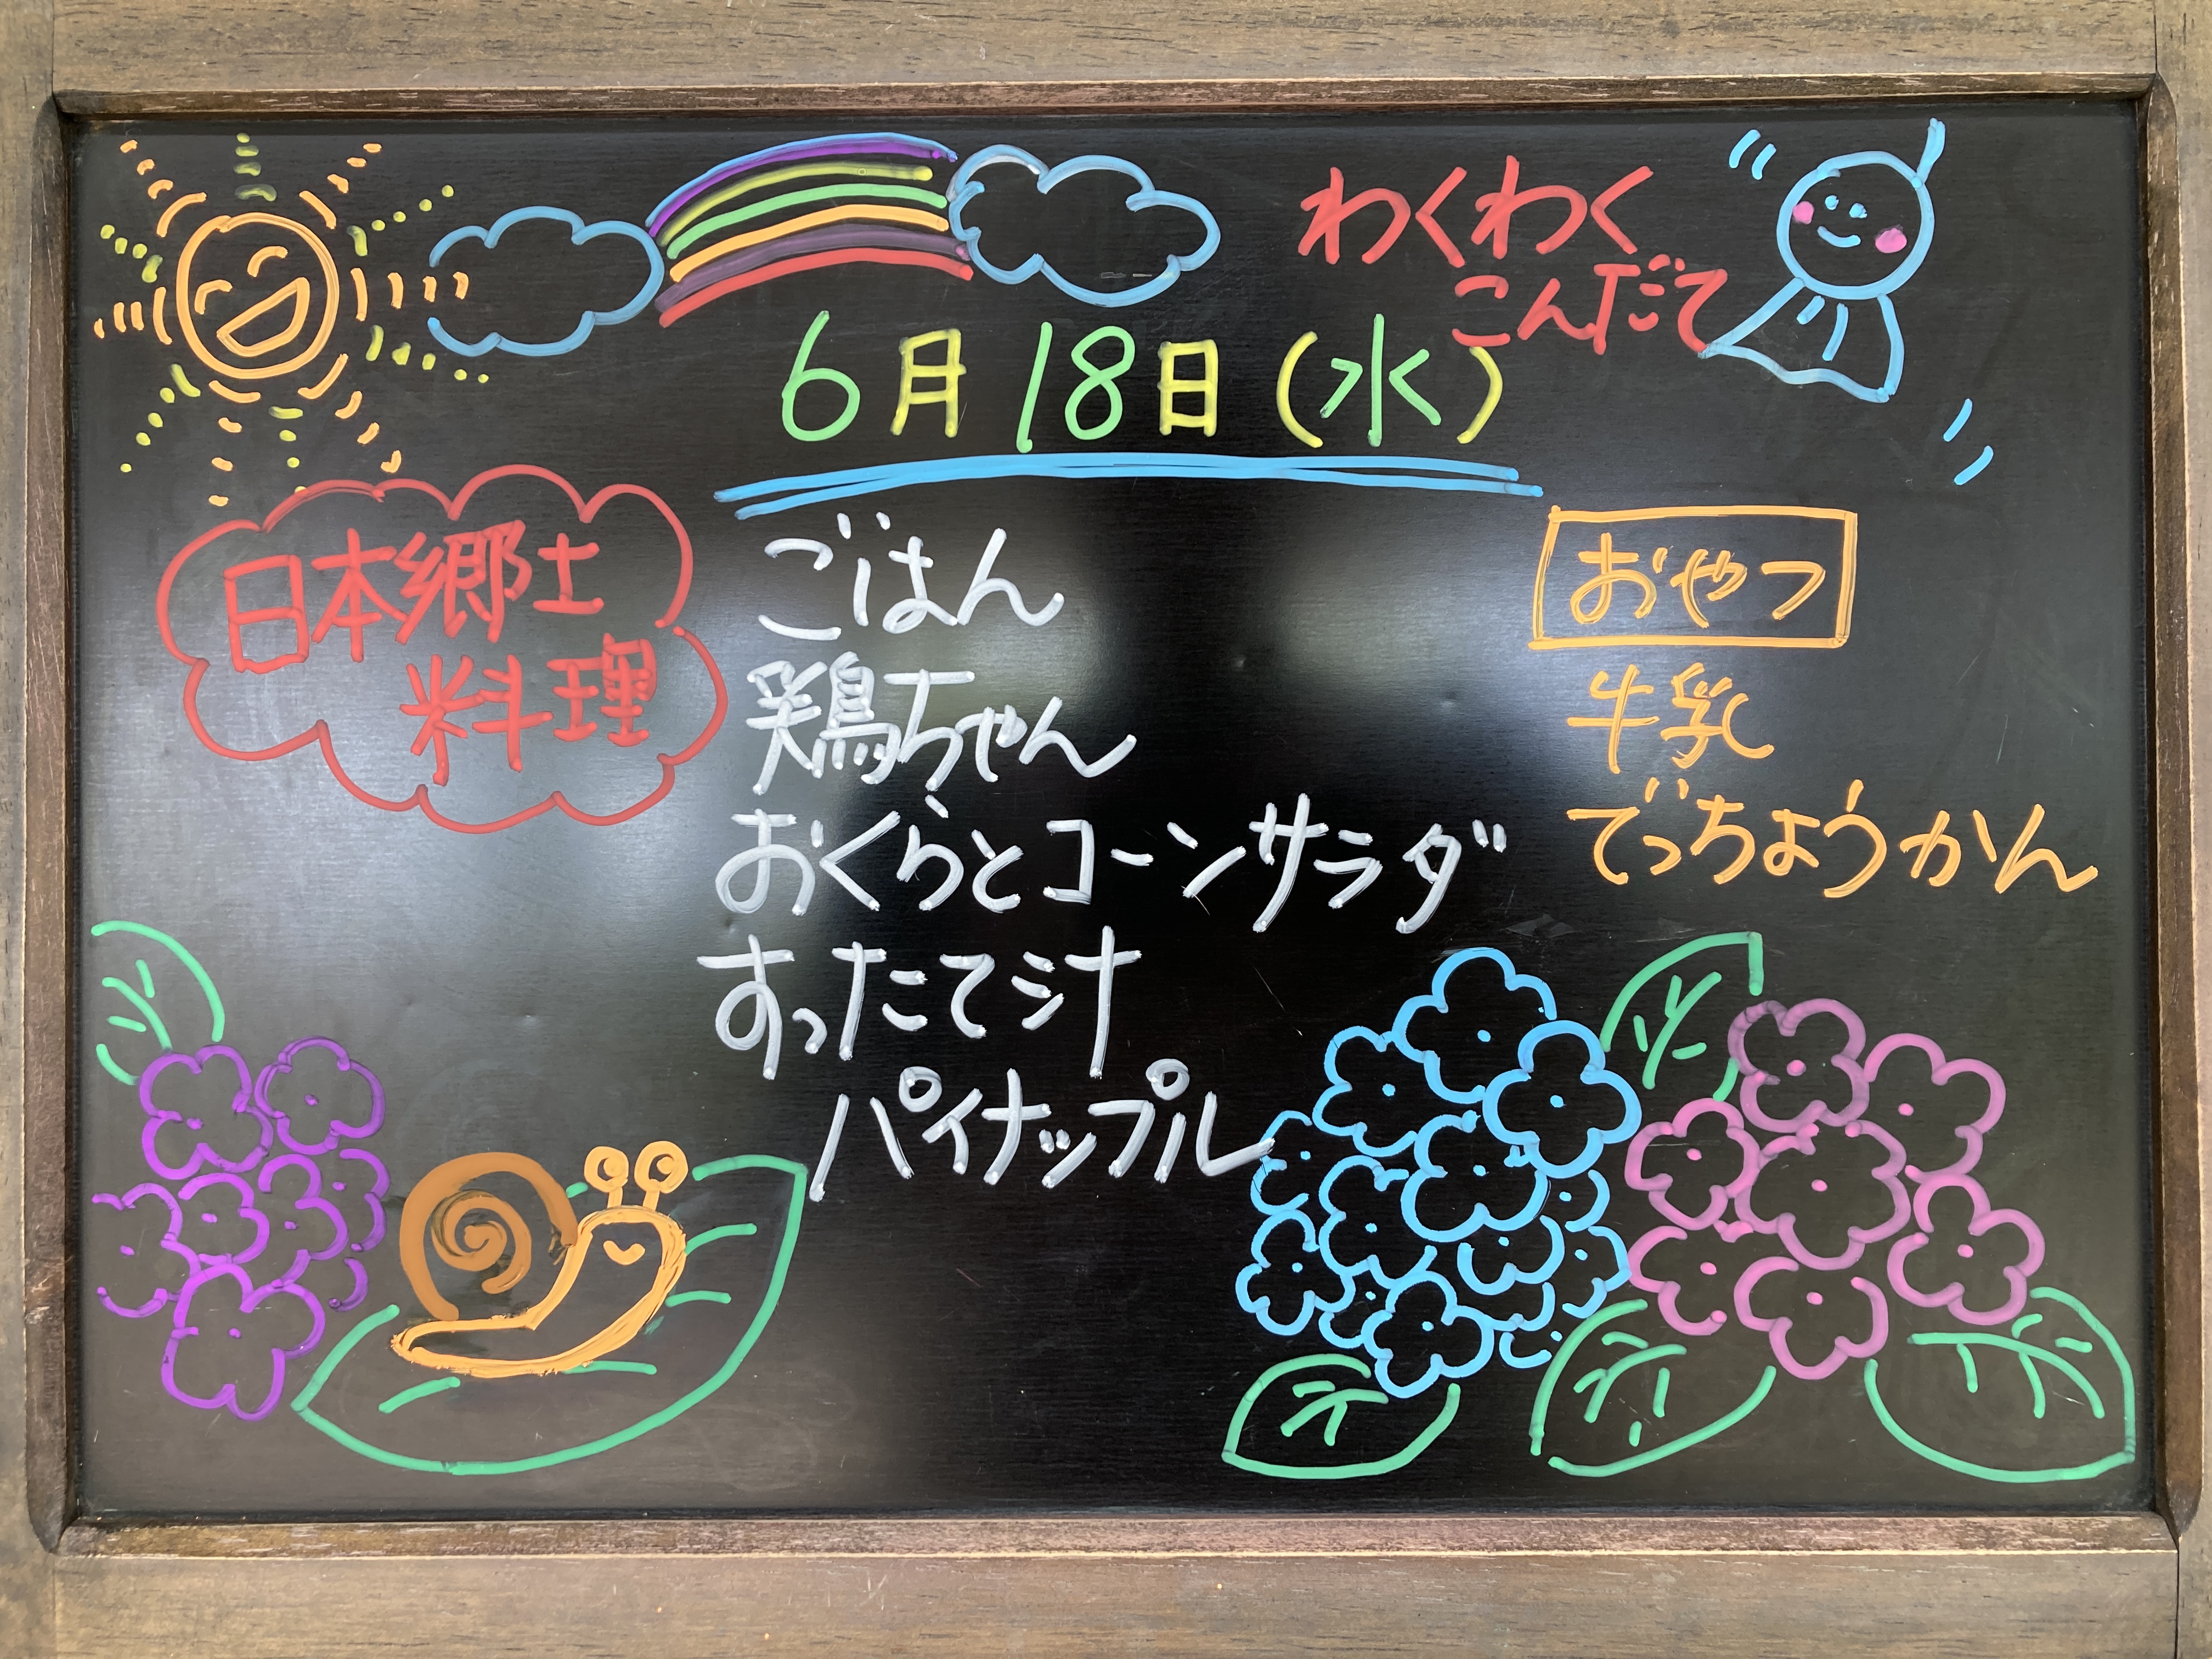 わくわく
こんだて
6月18日(水)
日本郷土
料理
ごはん
鶏ちゃん
おくらとコーンサラダ
すったて汁
パイナップル
おやつ
牛乳
でっちようかん